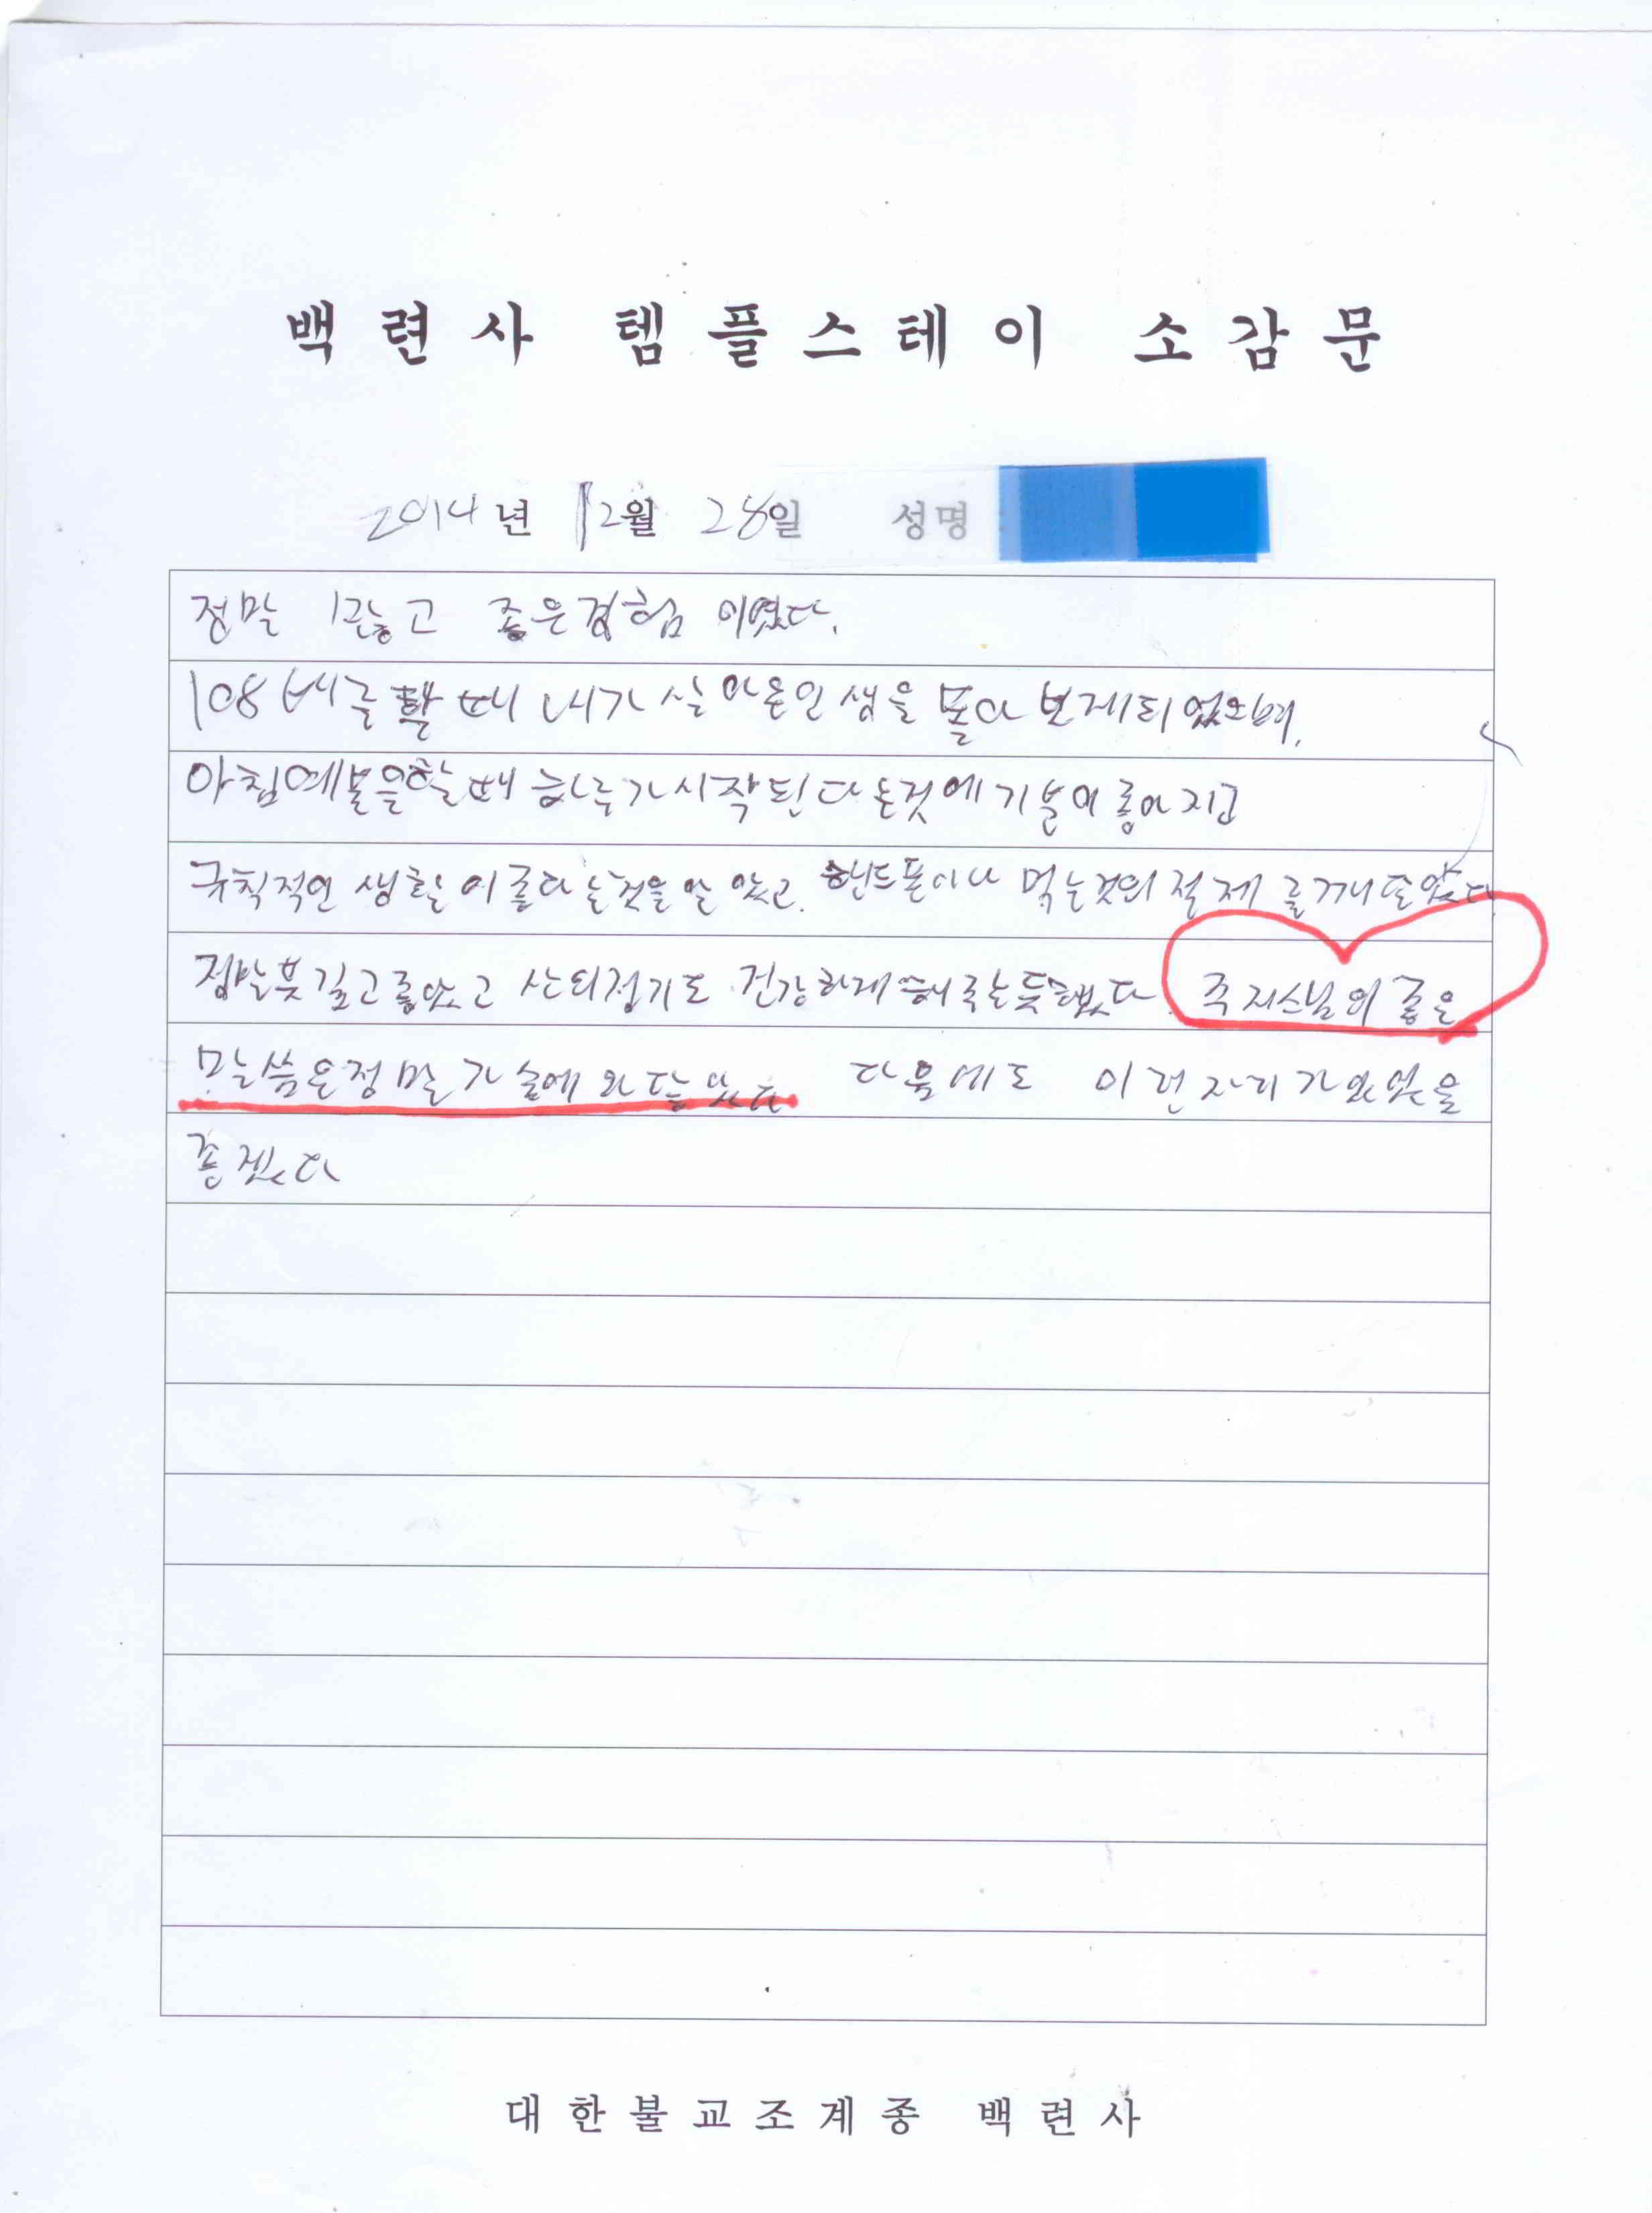 백련사 템플스테이 소감문
2014년 12월 28일 성명
정말 좋은경험 이였다.
108배를 할 때 내가 살아온인생을 돌아 보게되었으며,
아침예불을할때 하루가시작된다는것에기분이좋아지고
규칙적인 생활이좋다는것을알았고. 핸드폰이나 먹는것의 절제를깨달았다
정말뜻깊고좋았고 산의정기도 건강하게해주는듯했다. 주지스님의 좋은
말씀은정말가슴에와닿았다 다음에도 이런자리가있었음
좋겠다
대한불교조계종 백련사